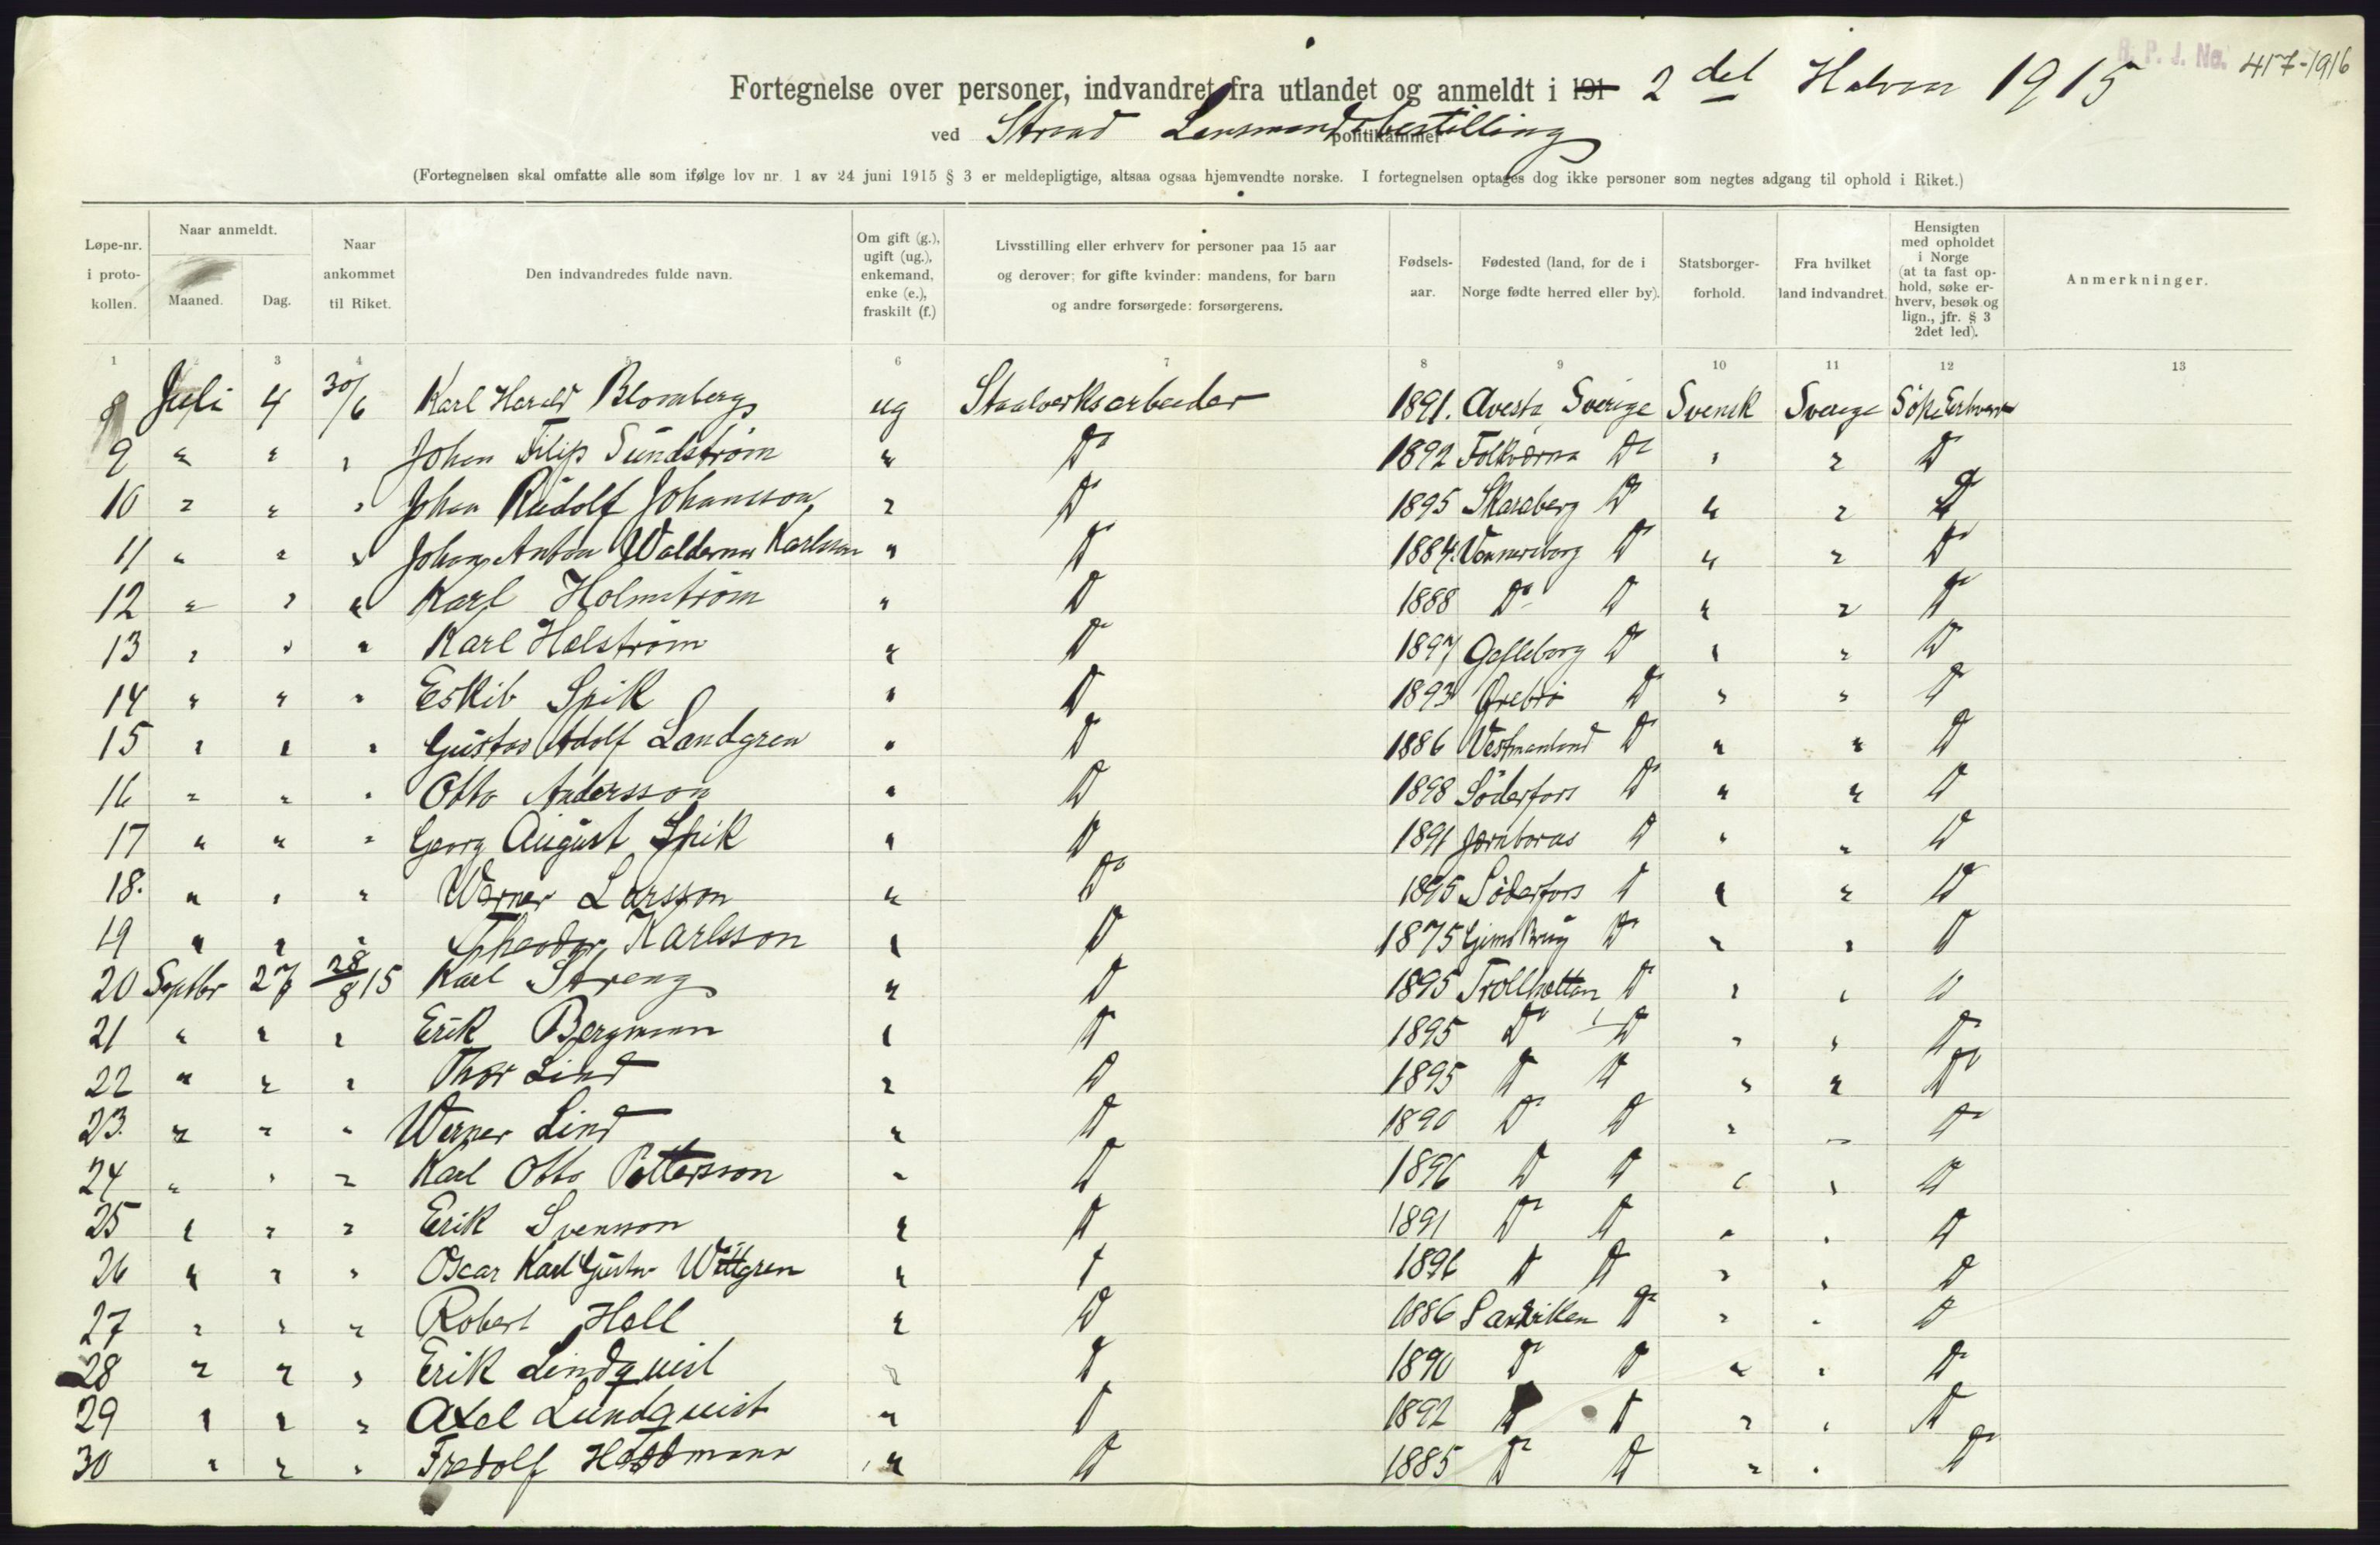 B. P. J. No. 417-1916
Fortegnelse over personer, indvandret fra utlandet og anmeldt i 191 2det Halvaar 1915
ved Strand Lensmandsbestilling politikammer
(Fortegnelsen skal omfatte alle som ifølge lov nr. 1 av 24 juni 1915 § 3 er meldepligtige, altsaa ogsaa hjemvendte norske. I fortegnelsen optages dog ikke personer som negtes adgang til ophold i Riket.)
Løpe-nr. i proto-kollen. Naar anmeldt. Maaned. Dag. Naar ankommet til Riket. Den indvandredes fulde navn. Om gift (g.), ugift (ug.), enkemand, enke (e.), fraskilt (f.) Livsstilling eller erhverv for personer paa 15 aar og derover; for gifte kvinder: mandens, for barn og andre forsørgede: forsørgerens. Fødsels-aar. Fødested (land, for de i Norge fødte herred eller by). Statsborger-forhold. Fra hvilket land indvandret. Hensigten med opholdet i Norge (at ta fast op-hold, søke er-hverv, besøk og lign., jfr. § 3 2det led). Anmerkninger.
1 2 3 4 5 6 7 8 9 10 11 12 13
8 Juli 4 30/6 Karl Harald Blomberg ug Staalverksarbeider 1891. Avesta Sverige Svensk Sverige Söke Erhverv
9 " " " Johan Filip Sundström " Do 1892 Folkärna Do " " Do
10 " " " Johan Rudolf Johansson " Do 1895 Skaraberg Do " " Do
11 " " " Johan Anton Waldemar Karlsson " Do 1884. Vennersborg Do " " Do
12 " " " Karl Holmström " Do 1888 Do Do " " Do
13 " " " Karl Halström " Do 1897 Gefleborg Do " " Do
14 " " " Eskil Spik " Do 1893 Ørebro Do " " Do
15 " " " Gustav Adolf Landgren " Do 1886 Vestmanland Do " " Do
16 " " " Otto Andersson " Do 1898 Söderfors Do " " Do
17 " " " Georg August Spik " Do 1891 Do " " Do
18. " " " Werner Larsson " Do 1895 Söderfors Do " " Do
19 " " " Theodor Karlsson " Do 1875 Do " " Do
20 Septbr 27 28/8 15 Karl Streng " Do 1895 Trollhattan Do " " Do
21 " " " Erik Bergman " Do 1895 Do Do " " Do
22 " " " Thor Lind " Do 1895 Do Do " " Do
23. " " " Werner Lind " Do 1890 Do Do " " Do
24 " " " Karl Otto Pettersson " Do 1896 Do Do " " Do
25 " " " Erik Svenson " Do 1891 Do Do " " Do
26 " " " Oscar Karl Gustav Wettgren " Do 1896 Do Do " " Do
27 " " " Robert Hall " Do 1886 Sandviken Do " " Do
28 " " " Erik Lindquist " Do 1890 Do Do " " Do
29 " " " Axel Lundquist " Do 1892 Do Do " " Do
30 " " " Fredolf " Do 1885 Do Do " " Do